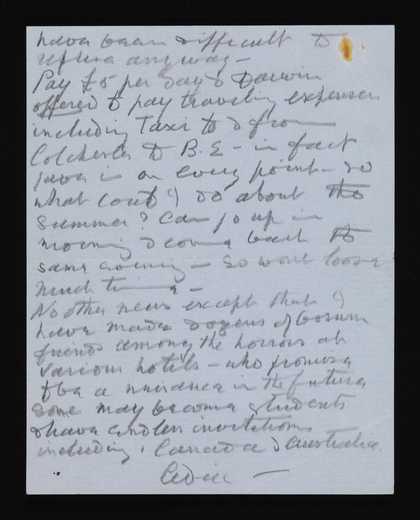 have been difficult to
refuse anyway –
Pay £5 per day & Darwin
offered to pay traveling expenses
including Taxis to & from
Colchester to B.E – in fact
gave in on every point – so
what could I do about the
summer? Can go up in
morning & come back the
same evening – so wont loose
much time –
No other news except that I
have made dozens of bosum
friends among the horrors at
various hotels – who promise
to be a nuisance in the future
some may become students
& have endless invitations
including, Canada & Australia.
Cedric –